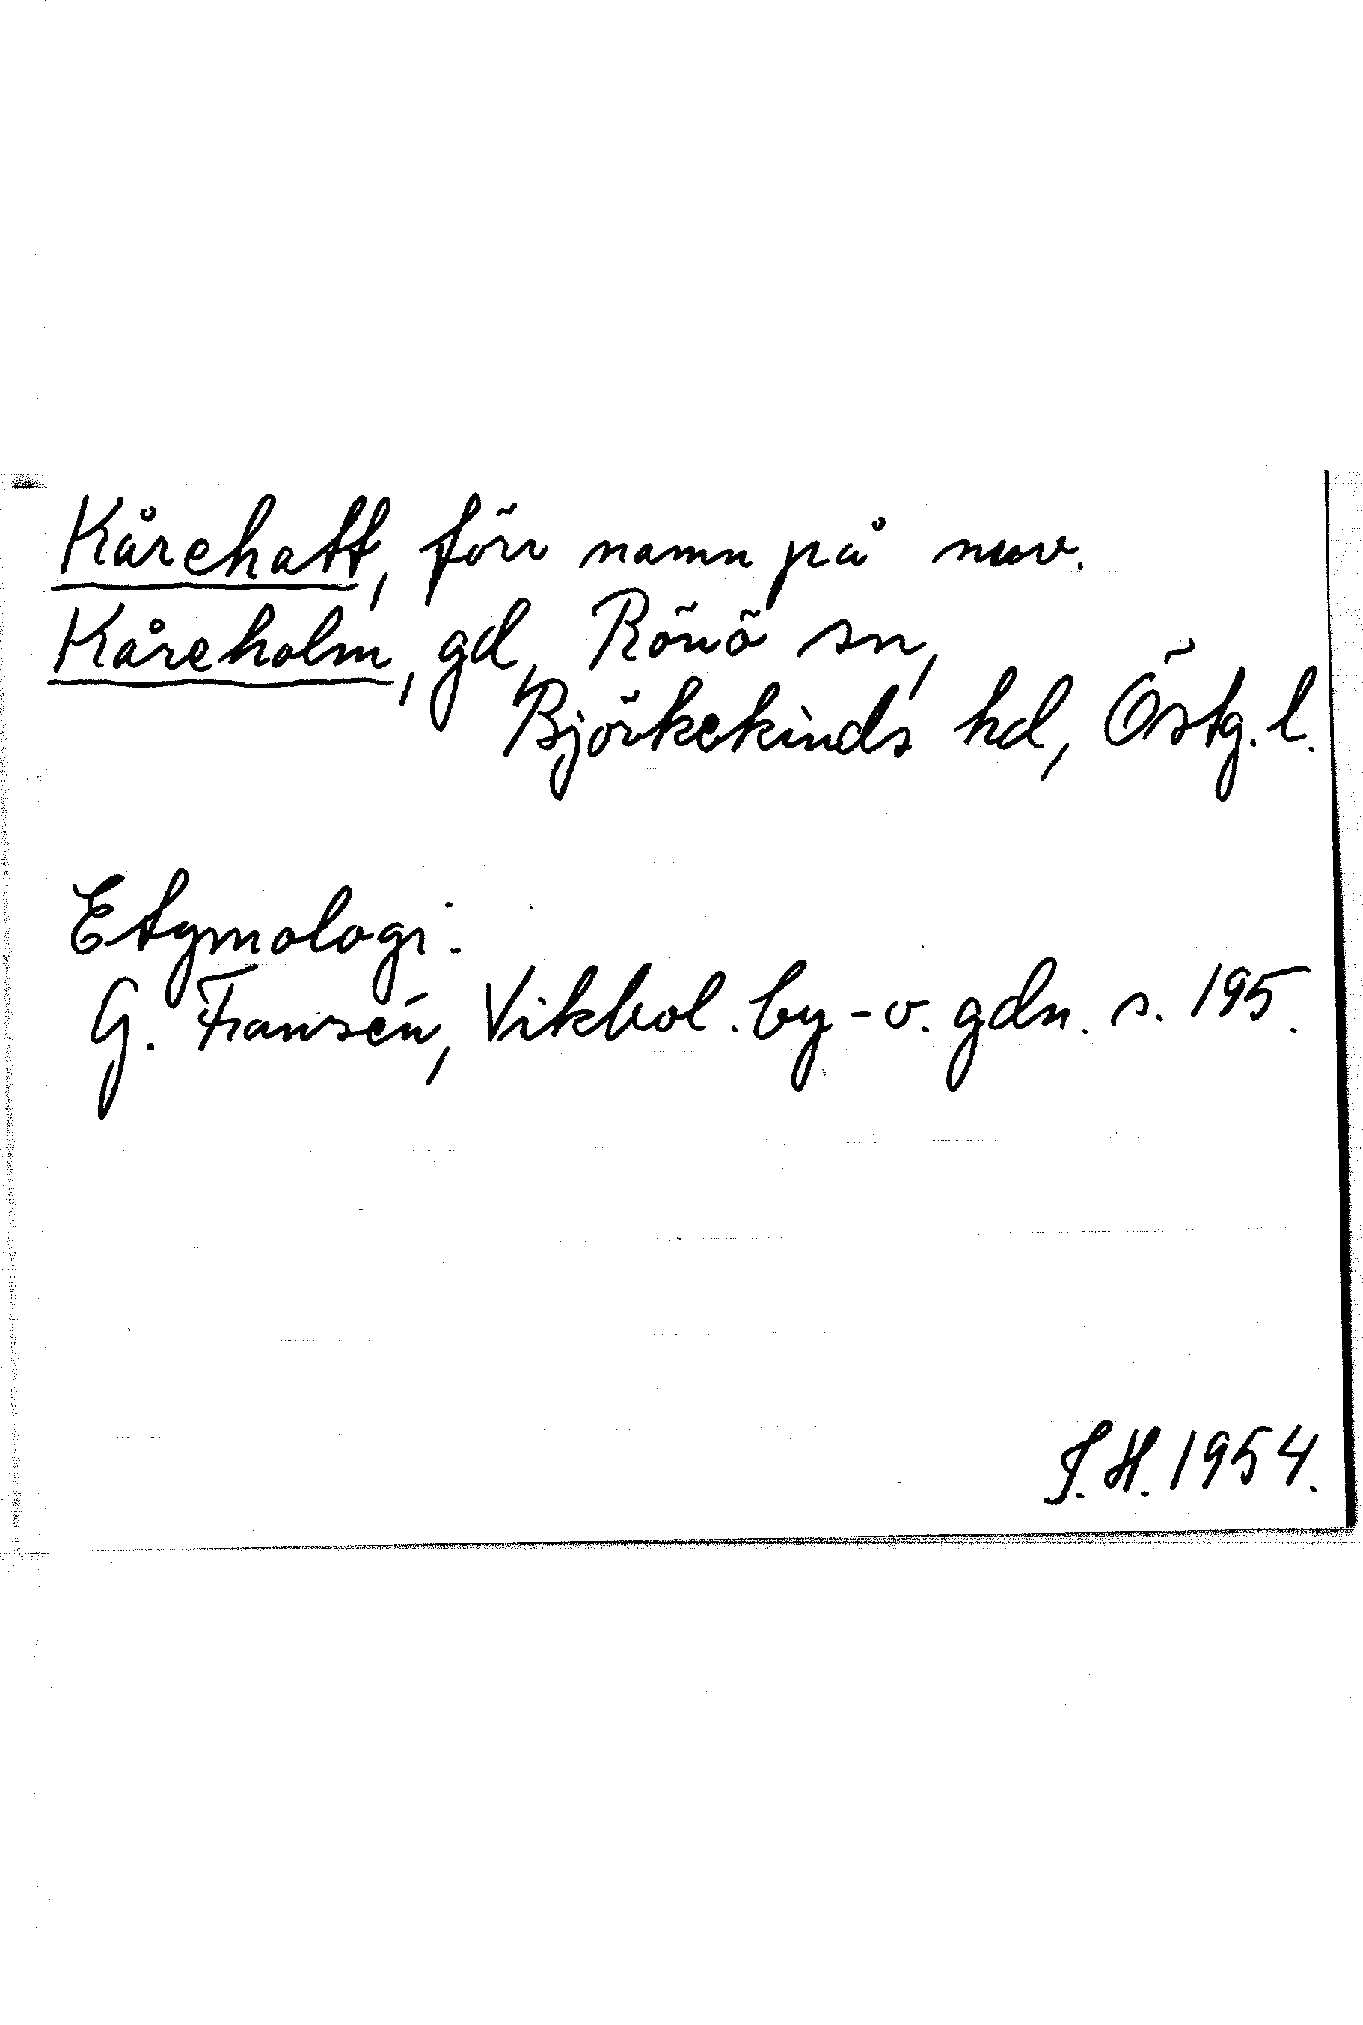 Kårehatt, förr namn på nuv.
Kåreholm, gd, Rönö sn,
Björkekinds hd, Östg. l.
Etymologi.
G. Fransén, Vikbol. by- o. gdn. s. 195.
S.H. 1954.